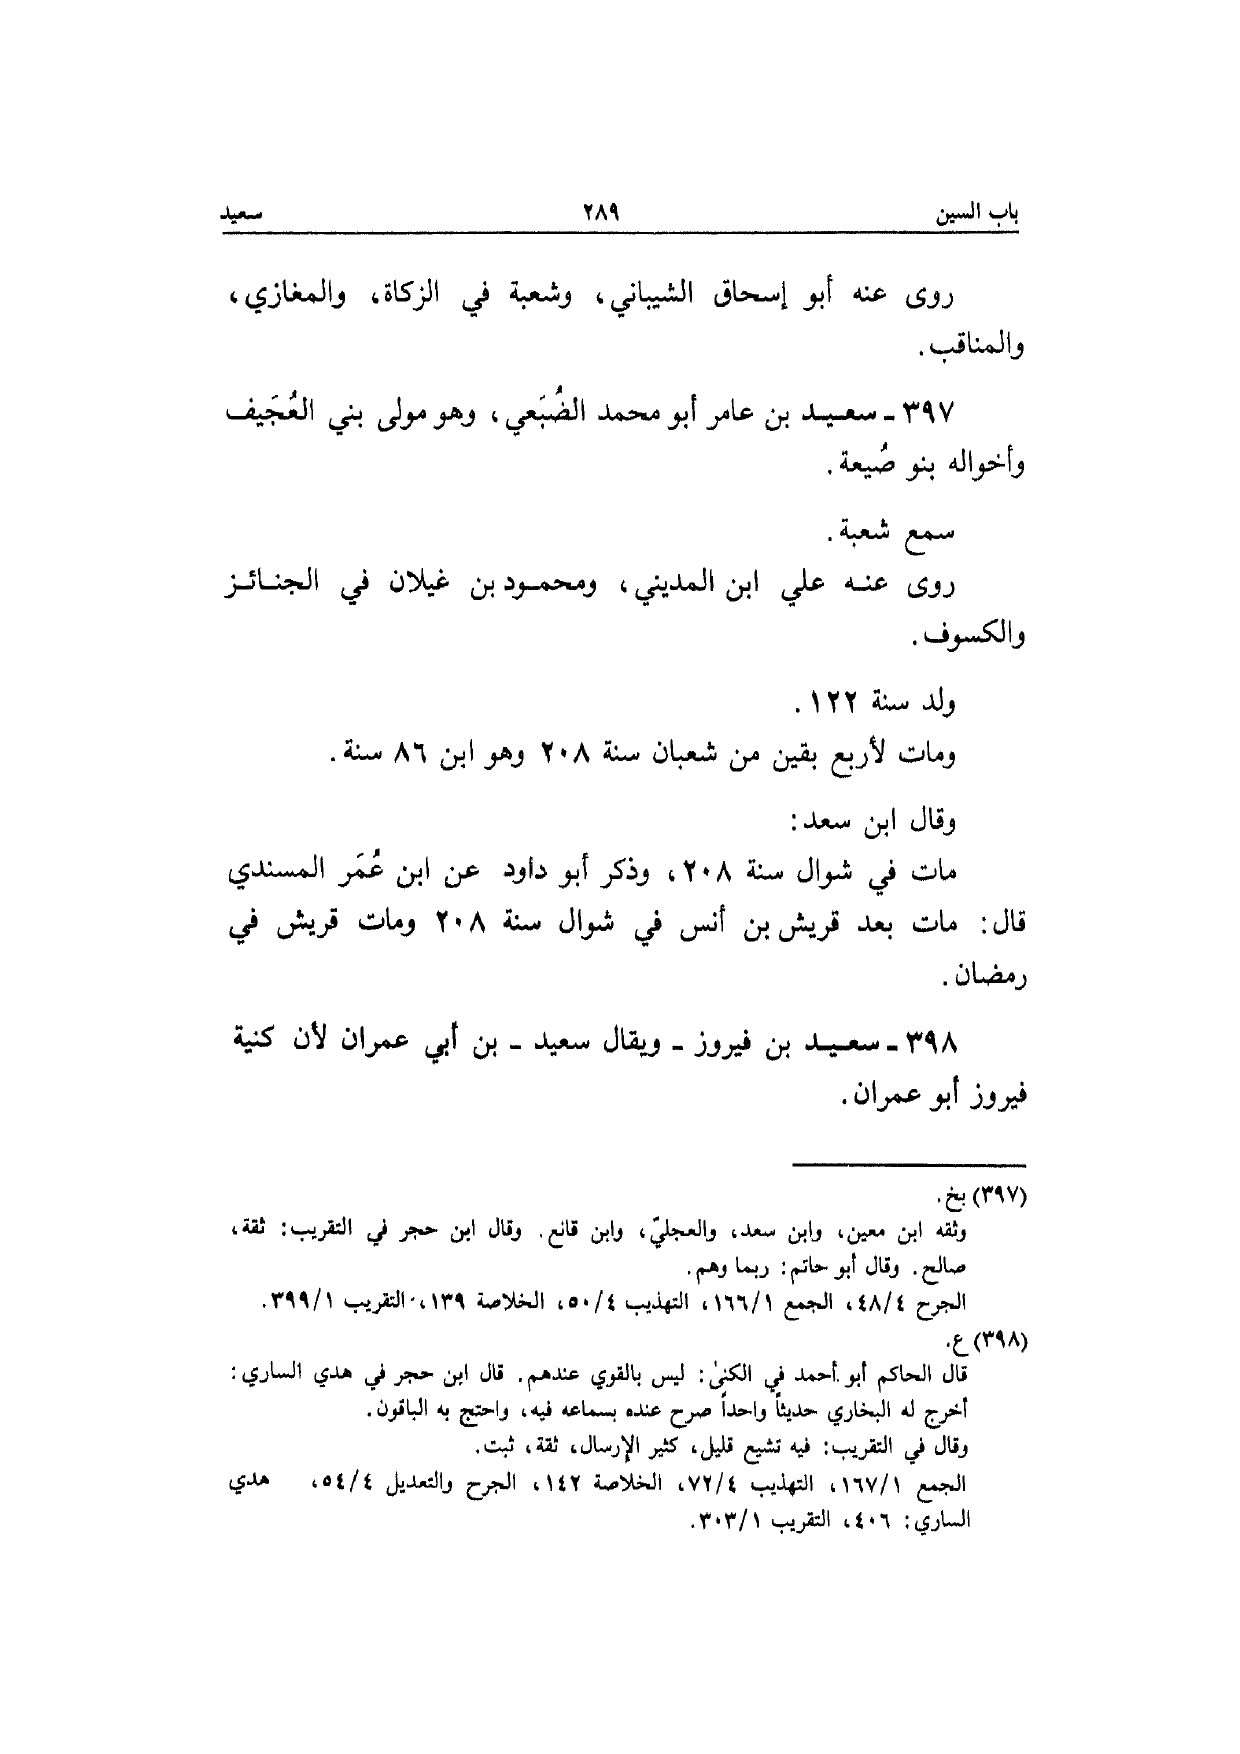 باب السين ٢٨٩ سعيد
روى عنه أبو إسحاق الشيباني، وشعبة في الزكاة، والمغازي،
والمناقب.
٣٩٧ ـ سعيد بن عامر أبو محمد الضُبَعي، وهو مولى بني العُجَيف
وأخواله بنو ضُيعة.
سمع شعبة.
روى عنه علي ابن المديني، ومحمود بن غيلان في الجنائز
والكسوف.
ولد سنة ١٢٢.
ومات لأربع بقين من شعبان سنة ٢٠٨ وهو ابن ٨٦ سنة.
وقال ابن سعد:
مات في شوال سنة ٢٠٨، وذكر أبو داود عن ابن عُمَر المسندي
قال: مات بعد قريش بن أنس في شوال سنة ٢٠٨ ومات قريش في
رمضان.
٣٩٨ ـ سعيد بن فيروز ـ ويقال سعيد ـ بن أبي عمران لأن كنية
فيروز أبو عمران.
(٣٩٧) بخ.
وثقه ابن معين، وابن سعد، والعجليّ، وابن قانع. وقال ابن حجر في التقريب: ثقة،
صالح. وقال أبو حاتم: ربما وهم.
الجرح ٤٨/٤، الجمع ١٦٦/١، التهذيب ٥٠/٤، الخلاصة ١٣٩، التقريب ٣٩٩/١.
(٣٩٨) ع.
قال الحاكم أبو أحمد في الكنىٰ: ليس بالقوي عندهم. قال ابن حجر في هدي الساري:
أخرج له البخاري حديثاً واحداً صرح عنده بسماعه فيه، واحتج به الباقون.
وقال في التقريب: فيه تشيع قليل، كثير الإرسال، ثقة، ثبت.
الجمع ١٦٧/١، التهذيب ٧٢/٤، الخلاصة ١٤٢، الجرح والتعديل ٥٤/٤، هدي
الساري: ٤٠٦، التقريب ٣٠٣/١.